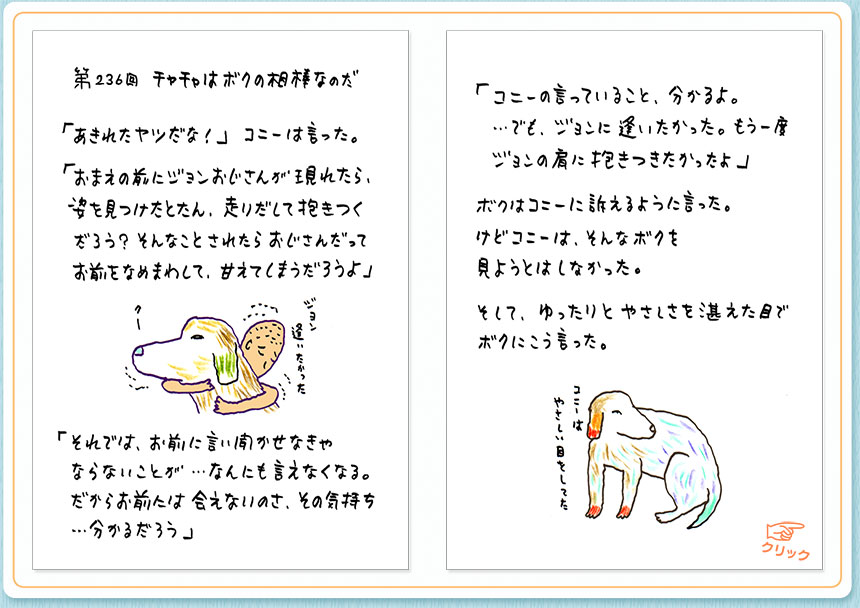 第236回 チャチャはボクの相棒なのだ
「あきれたヤツだな！」 コニーは言った。
「おまえの前にジョンおじさんが現れたら、
姿を見つけたとたん、走りだして抱きつく
だろう？そんなことされたらおじさんだって
お前をなめまわして、甘えてしまうだろうよ」
クー
ジョン
逢いたかった
「それでは、お前に言い聞かせなきゃ
ならないことが …なんにも言えなくなる。
だからお前たは 会えないのさ、その気持ち
…分かるだろう」
「コニーの言っていること、分かるよ。
…でも、ジョンに逢いたかった。もう一度
ジョンの肩に抱きつきたかったよ」
ボクはコニーに訴えるように言った。
けどコニーは、そんなボクを
見ようとはしなかった。
そして、ゆったりと やさしさを湛えた目で
ボクにこう言った。
コニーは
やさしい目をしてた
クリック